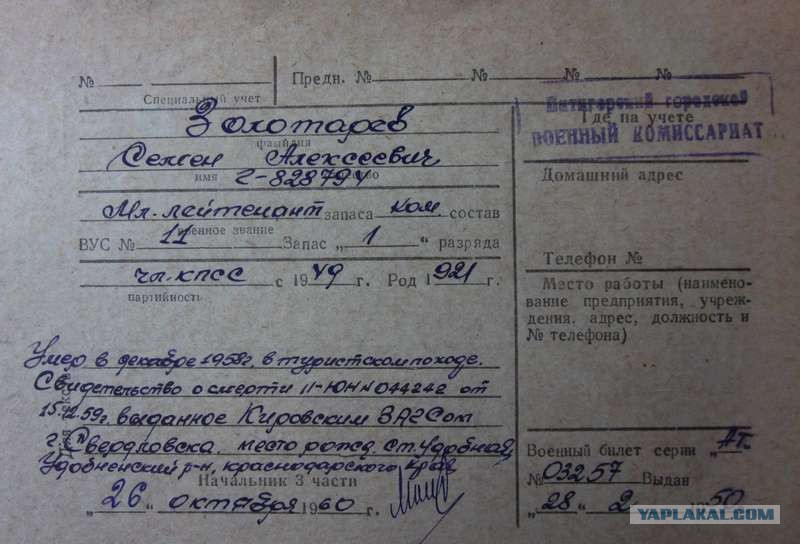 № Предн. № № № №
Специальный учет
Пятигорский городской
ВОЕННЫЙ КОМИССАРИАТ
Где на учете
Золотарев
фамилия
Семен Алексеевич
имя
Г-828794
Домашний адрес
Мл. лейтенант запаса ком состав
военное звание
ВУС № 11 Запас „1“ разряда
Телефон №
чл. КПСС с 1949 г. Род 1921 г.
партийность
Место работы (наименование предприятия, учреждения, адрес, должность и № телефона)
Умер в декабре 1958г. в туристском походе.
Свидетельство о смерти II-ЮН № 044242 от
59г. выданное Кировским ЗАГСом
г. Свердловска. место рожд. ст. Удобная,
Удобненский р-н, краснодарского края
Начальник 3 части
„26“ октября 1960 г.
Военный билет серии
№ 03257 Выдан
„28“ 2 50
YAPLAKAL.COM